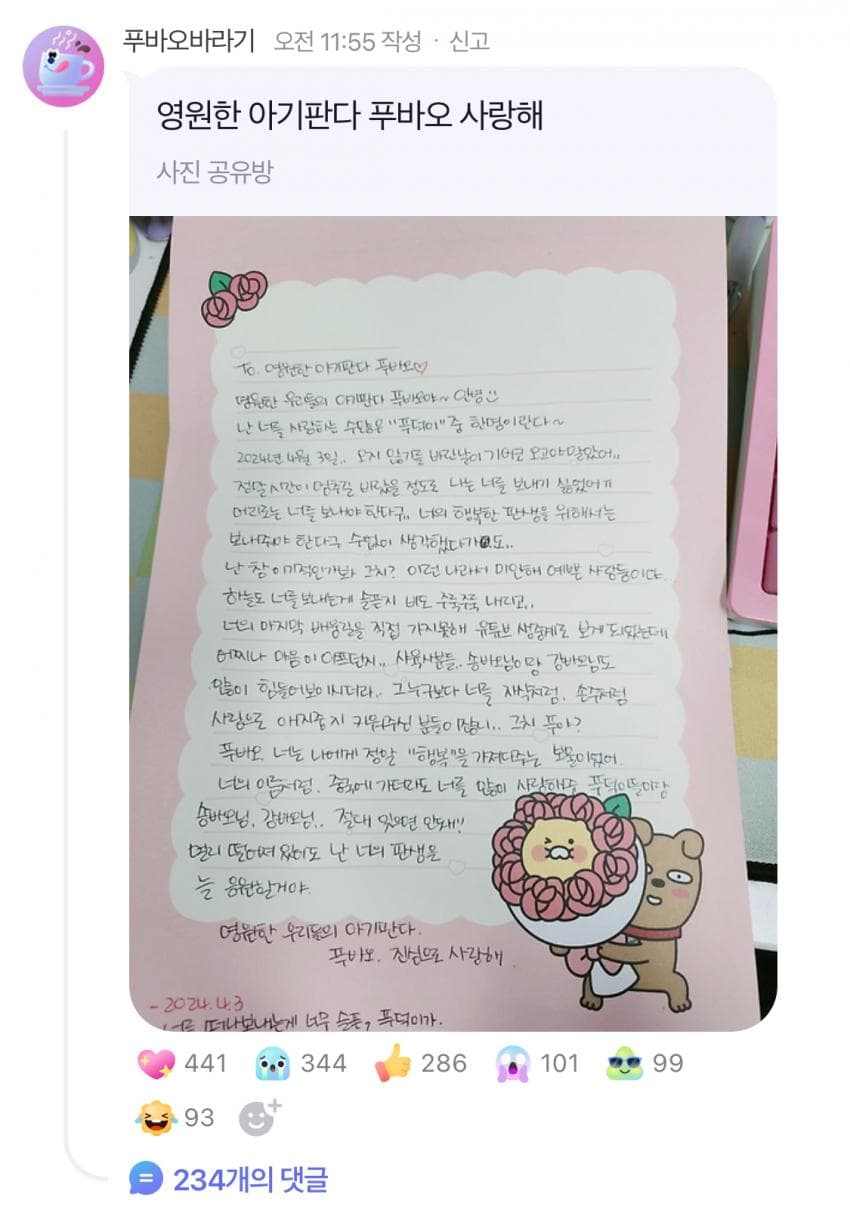 푸바오바라기 오전 11:55 작성 · 신고
영원한 아기판다 푸바오 사랑해
사진 공유방
To. 영원한 아기판다 푸바오♡
영원한 우리들의 아기판다 푸바오야~ 안녕
난 너를 사랑하는 수많은 "푸덕이" 중 한명이란다~
2024년 4월 3일.. 오지 않기를 바랬던날이 기어코 오고야말았어..
정말 시간이 멈추길 바랬을 정도로 나는 너를 보내기 싫었어ㅠ
머리로는 너를 보내야 한다구.. 너의 행복한 판생을 위해서는
보내줘야 한다구 수없이 생각했다가도..
난 참 이기적인가봐 그치? 이런 나라서 미안해 예쁜 사랑둥이야.
하늘도 너를 보내는게 슬픈지 비도 주룩주룩 내리고..
너의 마지막 배웅길을 직접 가지못해 유튜브 생중계로 보게 되었는데
어찌나 마음이 아프던지.. 사육사분들.. 송바오님이랑 강바오님도
많이 힘들어보이시더라.. 그누구보다 너를 자식처럼. 손주처럼
사랑으로 애지중지 키워주신 분들이잖니.. 그치 푸야?
푸바오. 너는 나에게 정말 "행복"을 가져다주는 보물이었어.
너의 이름처럼. 중국에 가더라도 너를 많이 사랑해준 푸덕이들이랑
송바오님, 강바오님.. 절대 잊으면 안돼!!
멀리 떨어져 있어도 난 너의 판생을
늘 응원할거야.
영원한 우리들의 아기판다.
푸바오. 진심으로 사랑해.
- 2024.4.3
너를 떠나보내는게 너무 슬픈, 푸덕이가.
441 344 286 101 99
93
234개의 댓글